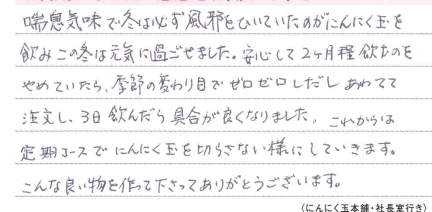 喘息気味で冬は必ず風邪をひいていたのがにんにく玉を
飲みこの冬は元気に過ごせました。安心して2ヶ月程飲むのを
やめていたら、季節の変わり目でゼロゼロしだしあわてて
注文し、3日飲んだら具合が良くなりました。これからは
定期コースでにんにく玉を切らさない様にしていきます。
こんな良い物を作って下さってありがとうございます。
(にんにく玉本舗・社長室行き)